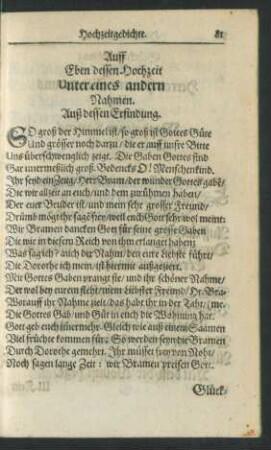 Hochzeitgedichte. 81
Auff
Eben dessen Hochzeit
Unter eines andern
Nahmen.
Auß dessen Erfindung.
SO groß der Himmel ist/ so groß ist Gottes Güte
Und grösser noch darzu/ die er auff unsre Bitte
Uns überschwenglich zeigt. Die Gaben Gottes sind
Gar unermeßlich groß. Bedencks O! Menschenkind.
Ihr seyd ein Zeug/ Herr Bram/ der wunder Gottes gabē/
Die wir allzeit an euch/ und dem zurühmen haben/
Der euer Bruder ist/ und mein sehr grosser Freund/
Drümb mögt ihr sagē frey/ weil euch Gott sehr wol meint:
Wir Bramen dancken Gott für seine grosse Gaben
Die wir in diesem Reich von ihm erlanget haben;
Was sag ich? auch der Nahm/ den eure Liebste führt/
Die Dorothe ich mein/ ist hiermit außgeziert.
Mit Gottes Gaben prangt sie/ und ihr schöner Nahme/
Der wol bey eurem steht/ mein süsser Freund/ Dr. Brame
Worauff ihr Nahme zielt/ das habt ihr in der That/
Die Gottes Gab/ und Güt in euch die Wohnung hat.
Gott geb euch immermehr. Gleich wie auß einem Saamen
Viel früchte kommen für; So werden seyn die Bramen
Durch Dorothe gemehrt. Ihr müsset frey von Noht/
Noch sagen lange Zeit: wir Bramen preisen Gott.
Glück-